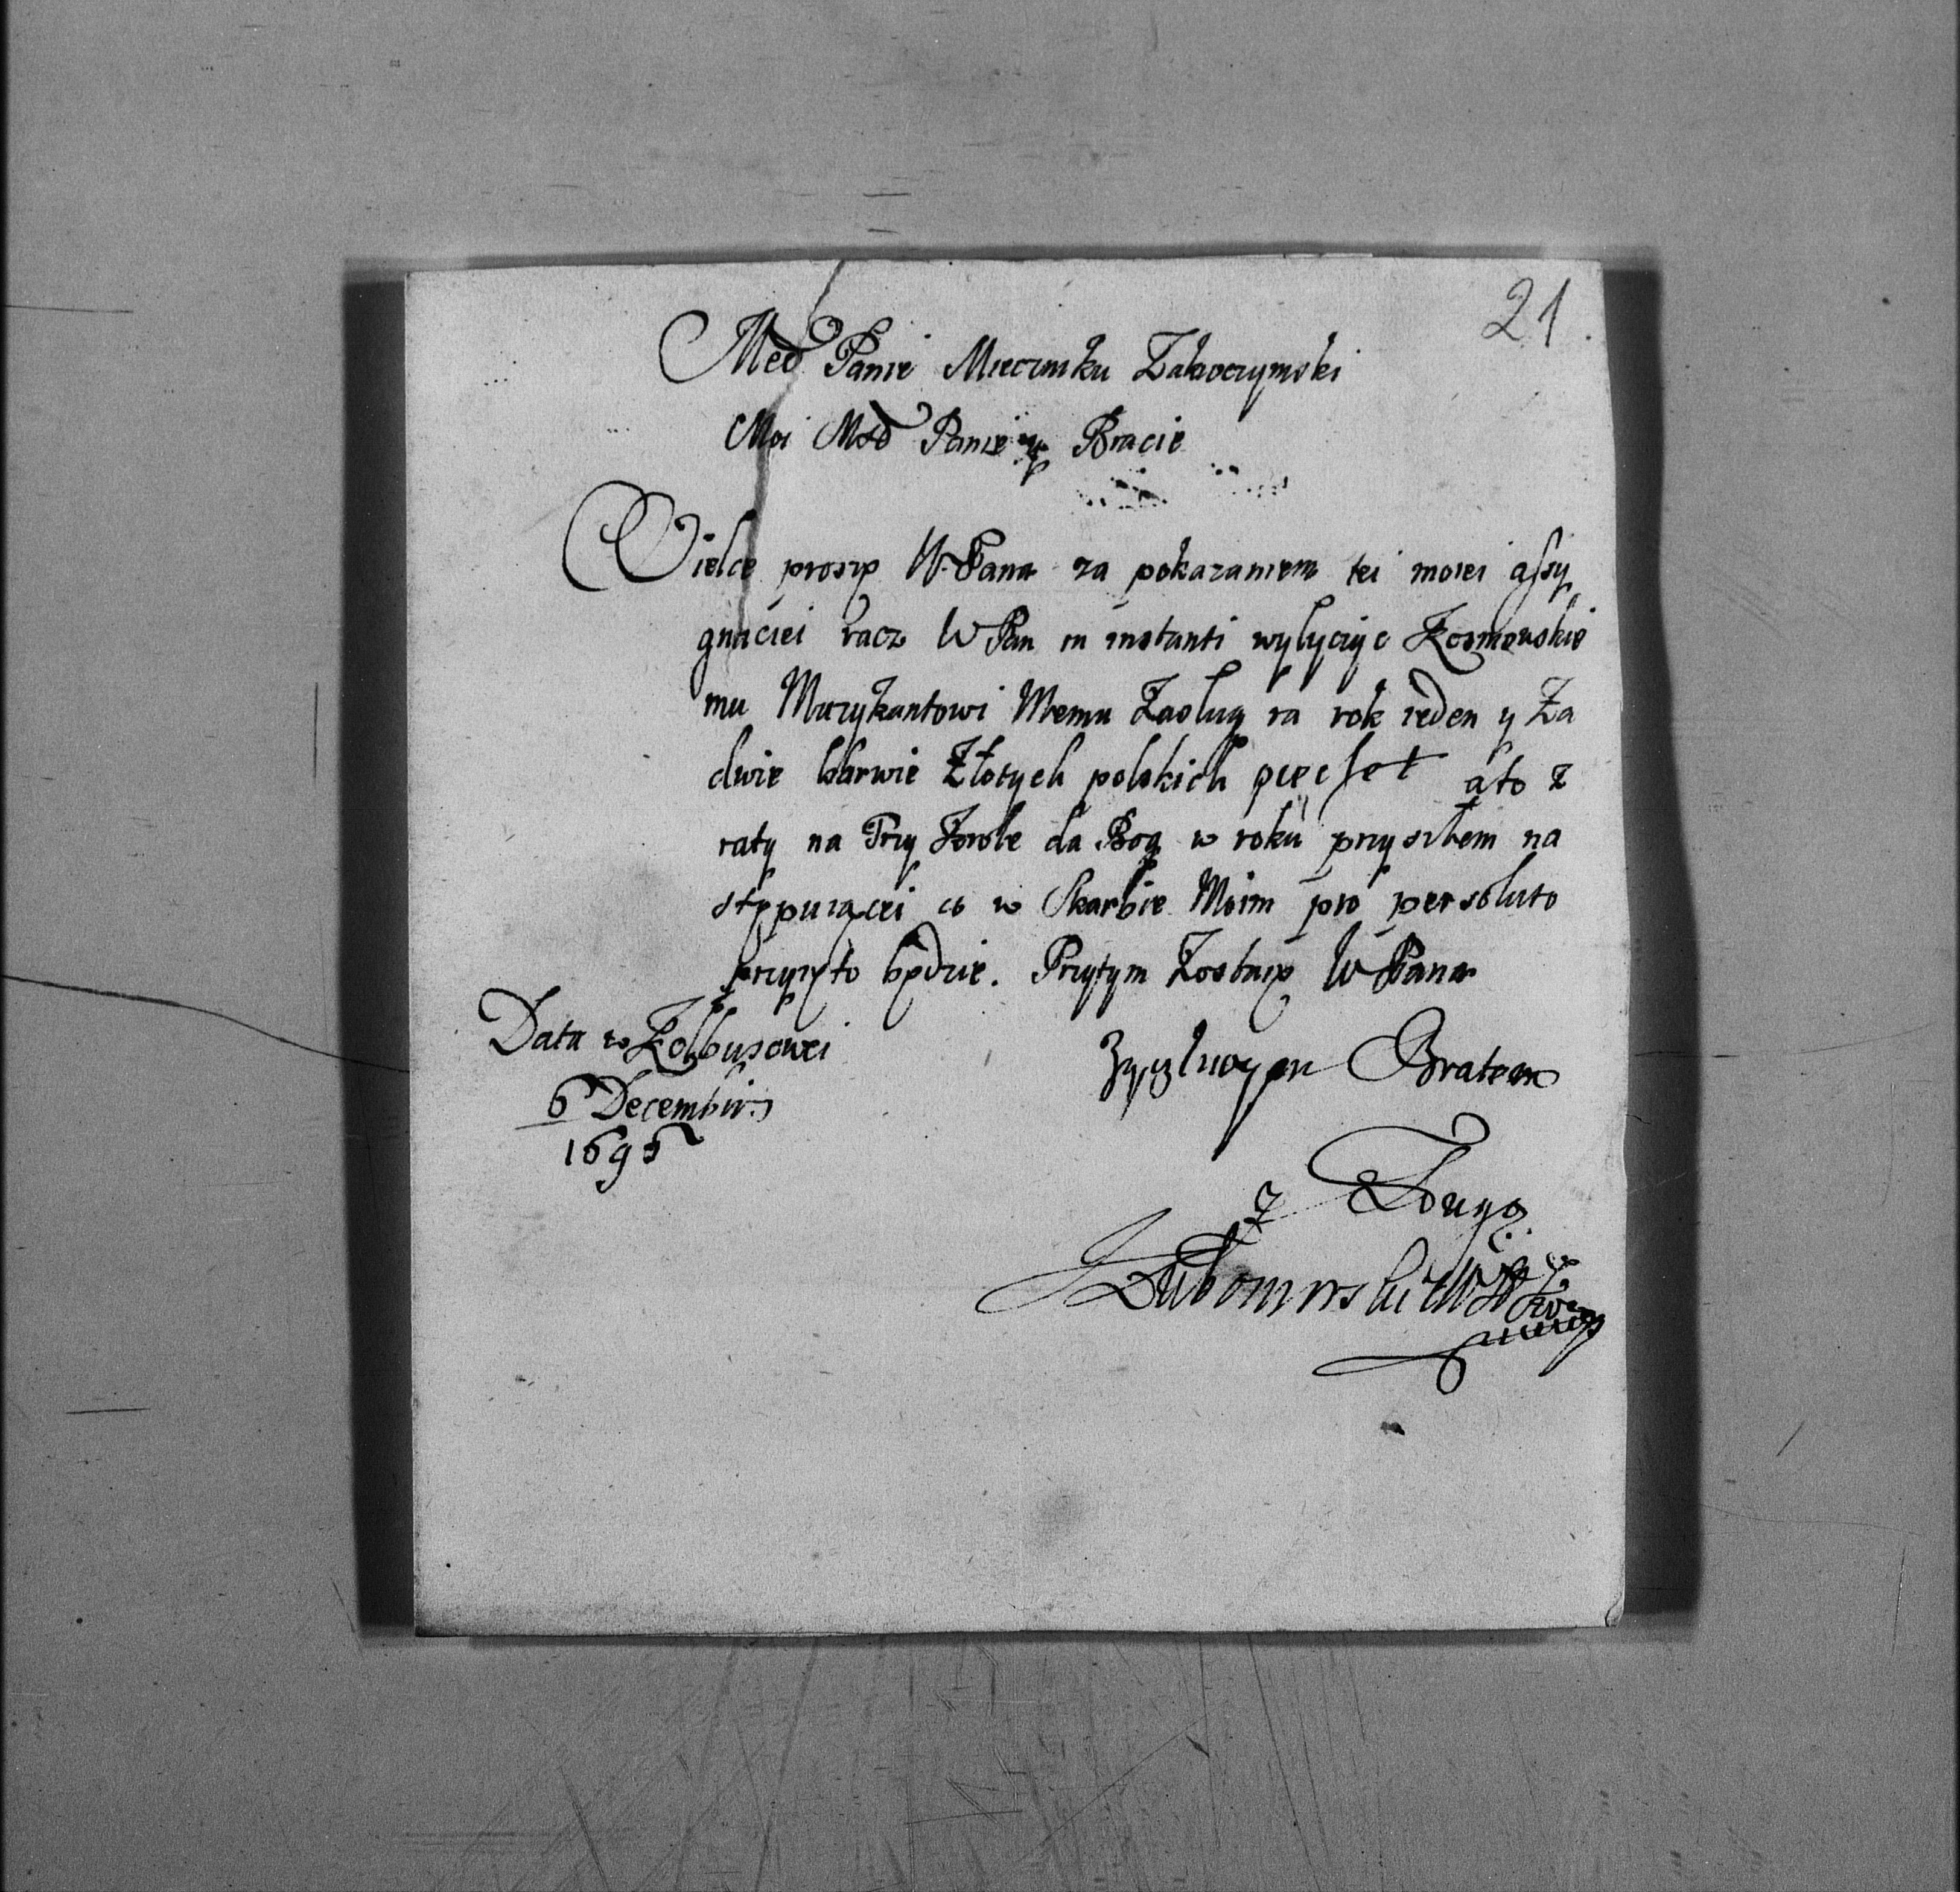 21
Mei Panie Miecznku Zakroczymski
Moi Mei Panie y Bracie
Wielce proszę W Pana za pokazaniem tei moiei assy
gnaciei racz W Pan in instanti wylyczyc Kosmowskie
mu Muzykantowi Memu Zasług za rok ieden y Za
dwie barwie Złotych polskich pięcset ato z
raty na Trzy Krole da Bog w roku przyszłem na
stępuiącei co w Skarbie Moim pro persoluto
przyięto będzie. Przytym Zostaię W Pana
Data w Kolbuszowei
6 Decembris
1695
Zyczliwym Bratem
y Sługą
Lubomirski